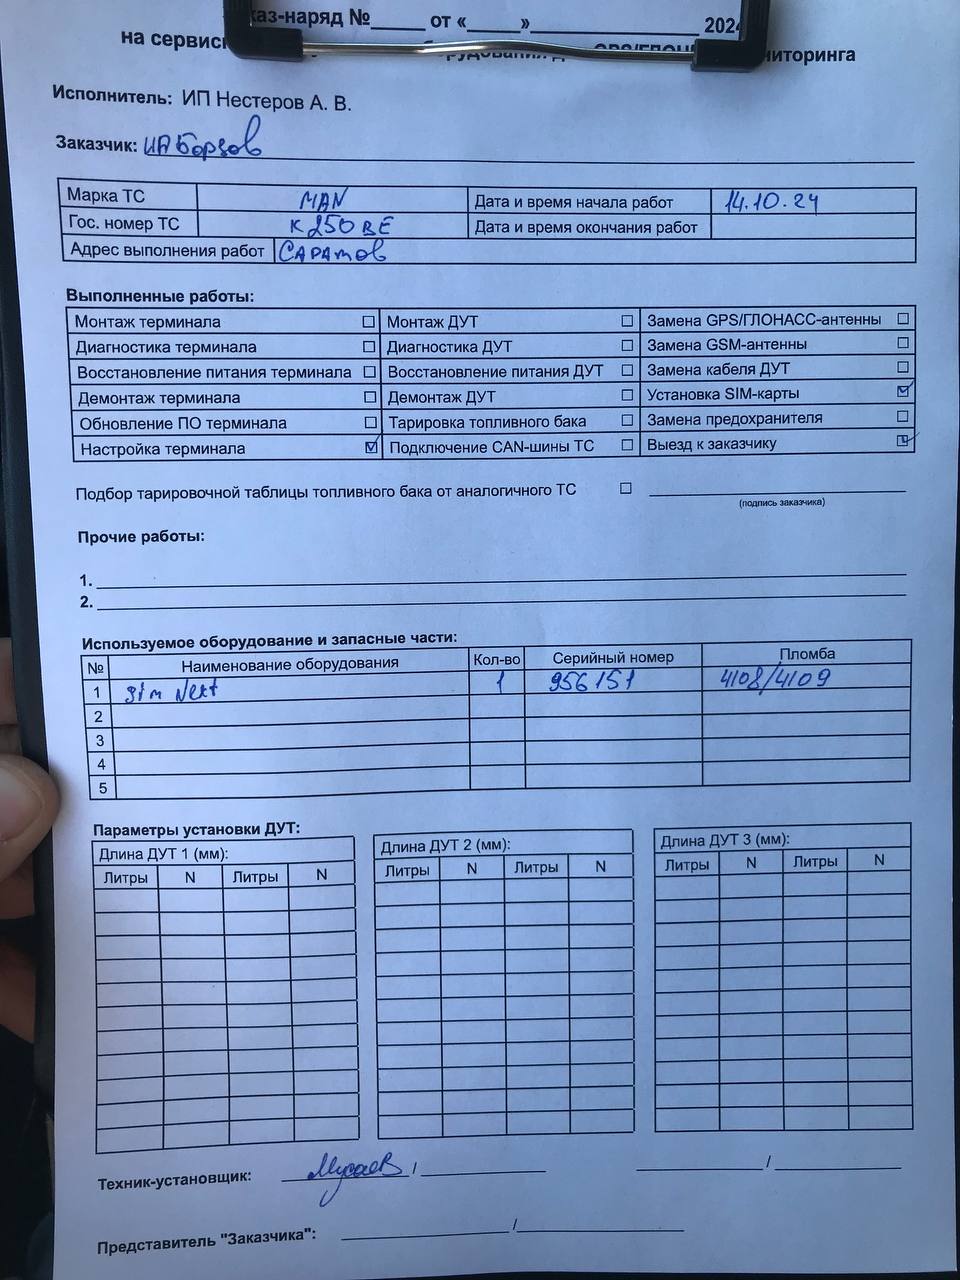 каз-наряд №_____ от «_____»________________ 2024
на сервис иторинга
Исполнитель: ИП Нестеров А. В.
Заказчик: ИП Борзов
Марка ТС MAN Дата и время начала работ 14.10.24
Гос. номер ТС К250ВЕ Дата и время окончания работ
Адрес выполнения работ Саратов
Выполненные работы:
Монтаж терминала ☐ Монтаж ДУТ ☐ Замена GPS/ГЛОНАСС-антенны ☐
Диагностика терминала ☐ Диагностика ДУТ ☐ Замена GSM-антенны ☐
Восстановление питания терминала ☐ Восстановление питания ДУТ ☐ Замена кабеля ДУТ ☐
Демонтаж терминала ☐ Демонтаж ДУТ ☐ Установка SIM-карты ☑
Обновление ПО терминала ☐ Тарировка топливного бака ☐ Замена предохранителя ☐
Настройка терминала ☑ Подключение CAN-шины ТС ☐ Выезд к заказчику ☑
Подбор тарировочной таблицы топливного бака от аналогичного ТС ☐
(подпись заказчика)
Прочие работы:
1.
2.
Используемое оборудование и запасные части:
№ Наименование оборудования Кол-во Серийный номер Пломба
1 Sim Next 1 956151 4108/4109
2
3
4
5
Параметры установки ДУТ:
Длина ДУТ 1 (мм): Длина ДУТ 2 (мм): Длина ДУТ 3 (мм):
Литры N Литры N Литры N Литры N Литры N Литры N
Техник-установщик: Мусаев / /
Представитель "Заказчика": /